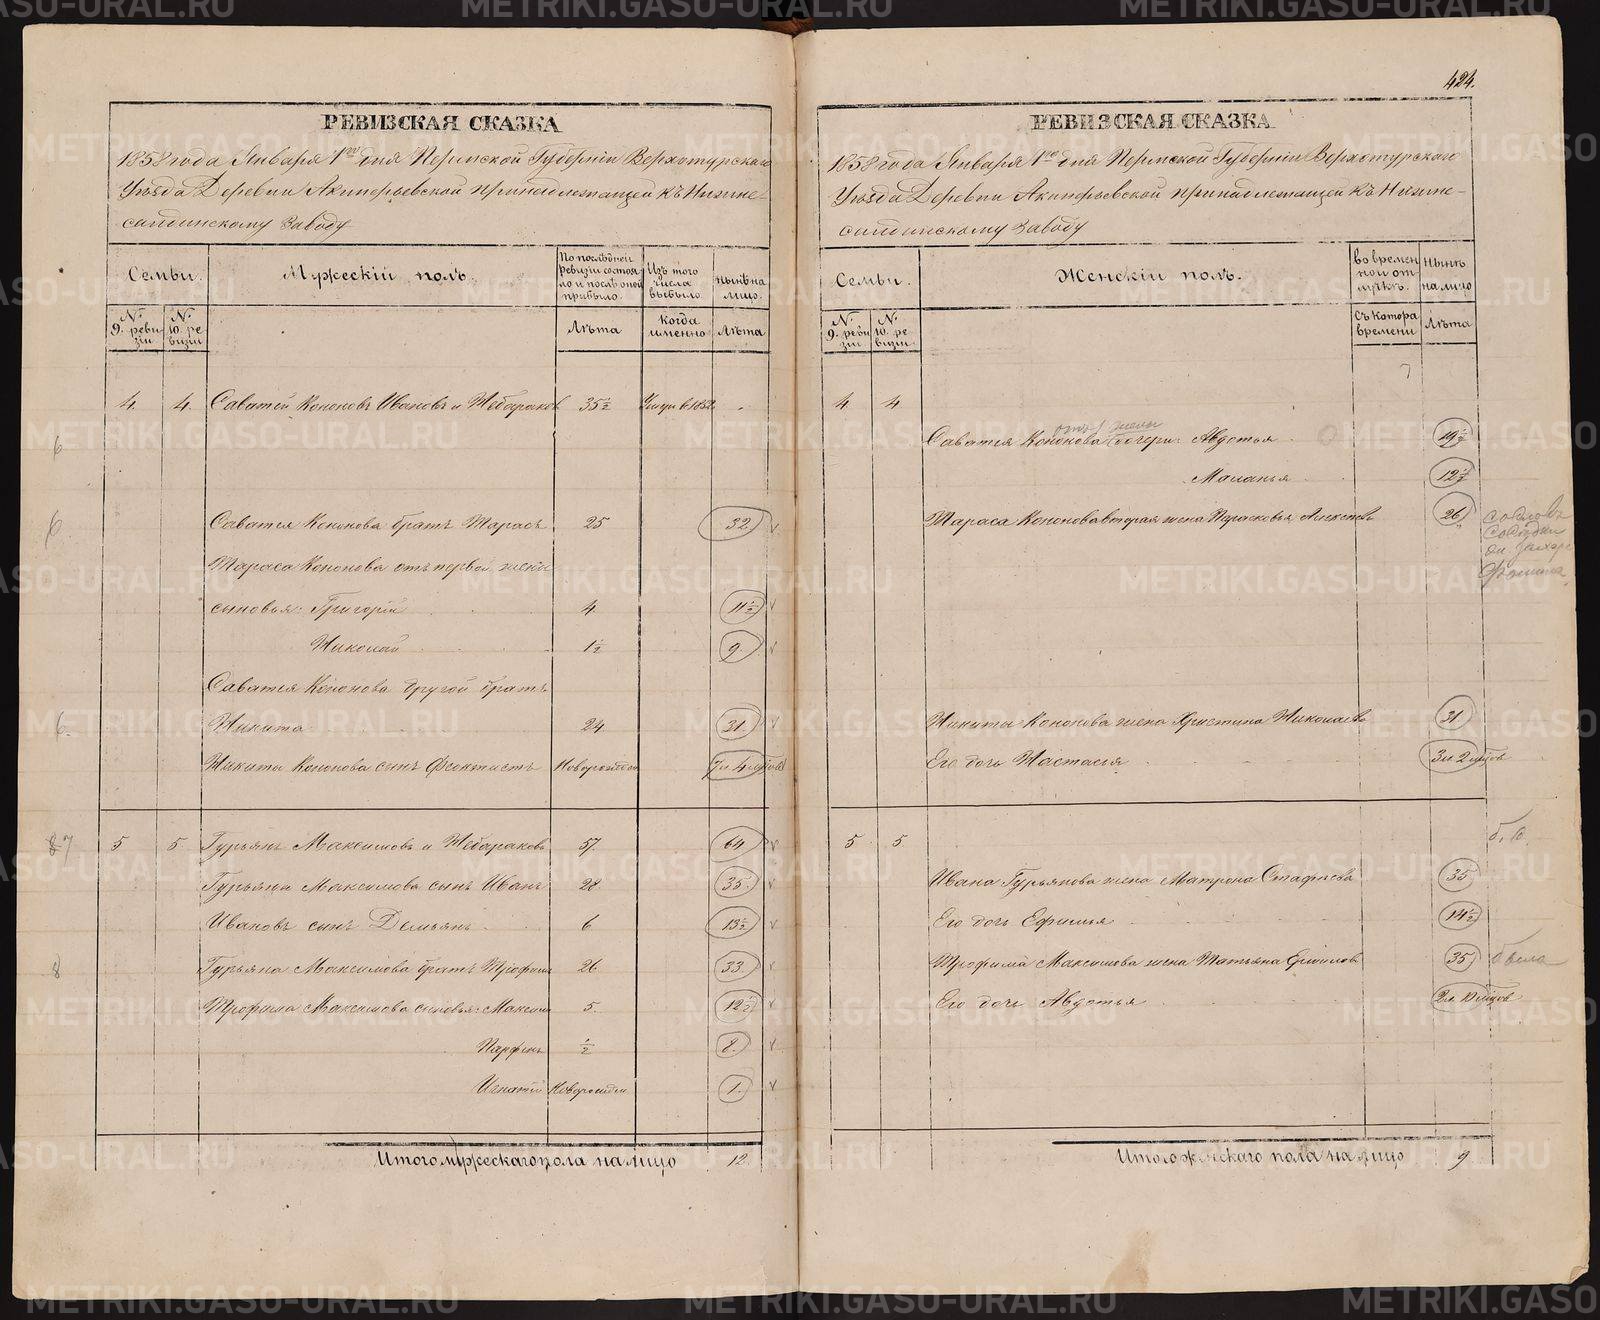 424.
РЕВИЗСКАЯ СКАЗКА
1858 года Января 1го дня Пермской Губерніи Верхотурскаго
Уѣзда Деревни Акинфьевской принадлежащей къ Нижне-
салдинскому Заводу
Семьи.
Мужескій полъ.
По послѣдней ревизіи состояло и послѣ оной прибыло.
Изъ того числа выбыло
Нынѣ на лицо.
№ 9. ревизіи
№ 10. ревизіи
Лѣта
Когда именно
Лѣта
4. 4. Саватей Кононовъ Ивановъ и Небараков 35½ Умеръ в 1852. -
6
6 Саватея Кононова братъ Тарасъ 25 32
Тараса Кононова отъ первой жены
сыновья: Григорій 4 11½
Николай 1½ 9
Саватея Кононова другой братъ
6. Никита 24 31
Никиты Кононова сынъ Феоктистъ Новорожден
87 5 5 Гурьянъ Максимовъ и Небараковъ 57. 64
Гурьяна Максимова сынъ Иванъ 28 35.
Ивановъ сынъ Демьянъ 6 13½
8 Гурьяна Максимова братъ Трофимъ 26 33
Трофима Максимова сыновья: Максим 5. 12½
Парфенъ ½ 8.
Игнатій Новорожден 1.
Итого мужескаго пола на лицо 12.
РЕВИЗСКАЯ СКАЗКА
1858 года Января 1го дня Пермской Губерніи Верхотурскаго
Уѣзда Деревни Акинфьевской принадлежащей къ Нижне-
салдинскому Заводу
Семьи.
Женскій полъ.
во временной отлучкѣ.
Нынѣ на лицо
№ 9. ревизіи
№ 10. ревизіи
Съ котора времени
Лѣта
4 4
Саватея Кононова дочери: Авдотья 19½
Маланья 12½
Тараса Кононова вторая жена Парасковья Алексѣев 26
Никиты Кононова жена Христина Николаев 31
Его дочь Настасья 3 и 2
5 5
Ивана Гурьянова жена Матрона Стафѣева 35
Его дочь Ефимья 14½
Трофима Максимова жена Татьяна 35
Его дочь Авдотья
Итого женскаго пола на лицо 9
METRIKI.GASO-URAL.RU